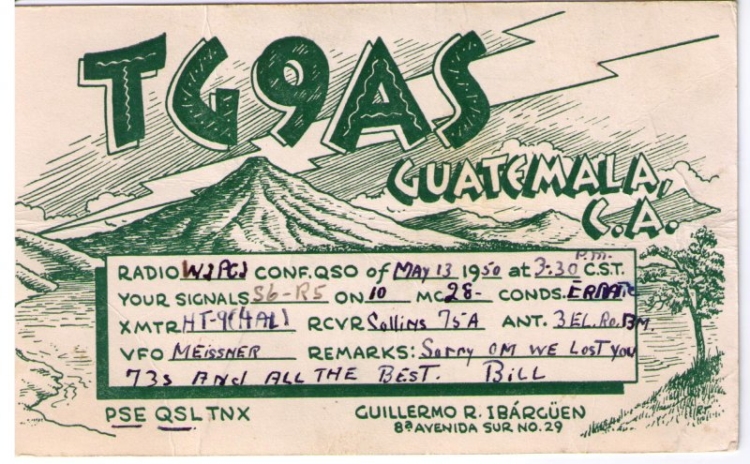 TG9AS
GUATEMALA,
C.A.
RADIO W2PCJ CONF. QSO of MAY 13 1950 at 3:30 P.M. C.S.T.
YOUR SIGNALS S6-R5 ON 10 MC 28- CONDS. ERRATIC
XMTR HT-9(4AL) RCVR Collins 75A ANT. 3 EL. Ro. BM.
VFO MEISSNER REMARKS: Sorry OM WE LOST YOU
73s And ALL THE BEST. BILL
PSE QSL TNX
GUILLERMO R. IBÁRGÜEN
8ª AVENIDA SUR NO. 29